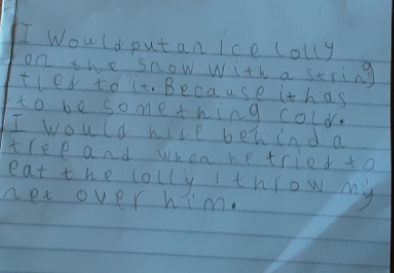 I would put an ice lolly
on the snow with a string
tied to it. Because it has
to be something cold.
I would hide behind a
tree and when he tried to
eat the lolly I throw my
net over him.